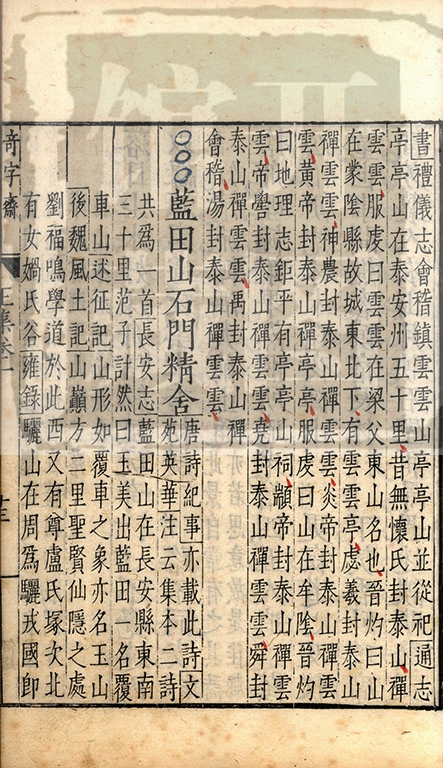 書禮儀志會稽鎮雲雲山亭亭山並從祀通志
亭亭山在泰安州五十里昔無懷氏封泰山禪
雲雲服虔曰雲雲在梁父東山名也晉灼曰山
在蒙陰縣故城東北下有雲雲亭虙羲封泰山
禪雲雲神農封泰山禪雲雲炎帝封泰山禪雲
雲黃帝封泰山禪亭亭服虔曰山在牟陰晉灼
曰地理志鉅平有亭亭山祠顓帝封泰山禪雲
雲帝嚳封泰山禪雲雲堯封泰山禪雲雲舜封
泰山禪雲雲禹封泰山禪
會稽湯封泰山禪雲雲
○○○藍田山石門精舍
唐詩紀事亦載此詩文
苑英華注云集本二詩
共為一首長安志藍田山在長安縣東南
三十里范子計然曰玉美出藍田一名覆
車山述征記山形如覆車之象亦名玉山
後魏風土記山巔方二里聖賢仙隱之處
劉福鳴學道於此西又有尊盧氏塚次北
有女媧氏谷雍錄驪山在周為驪戎國即
奇字齋